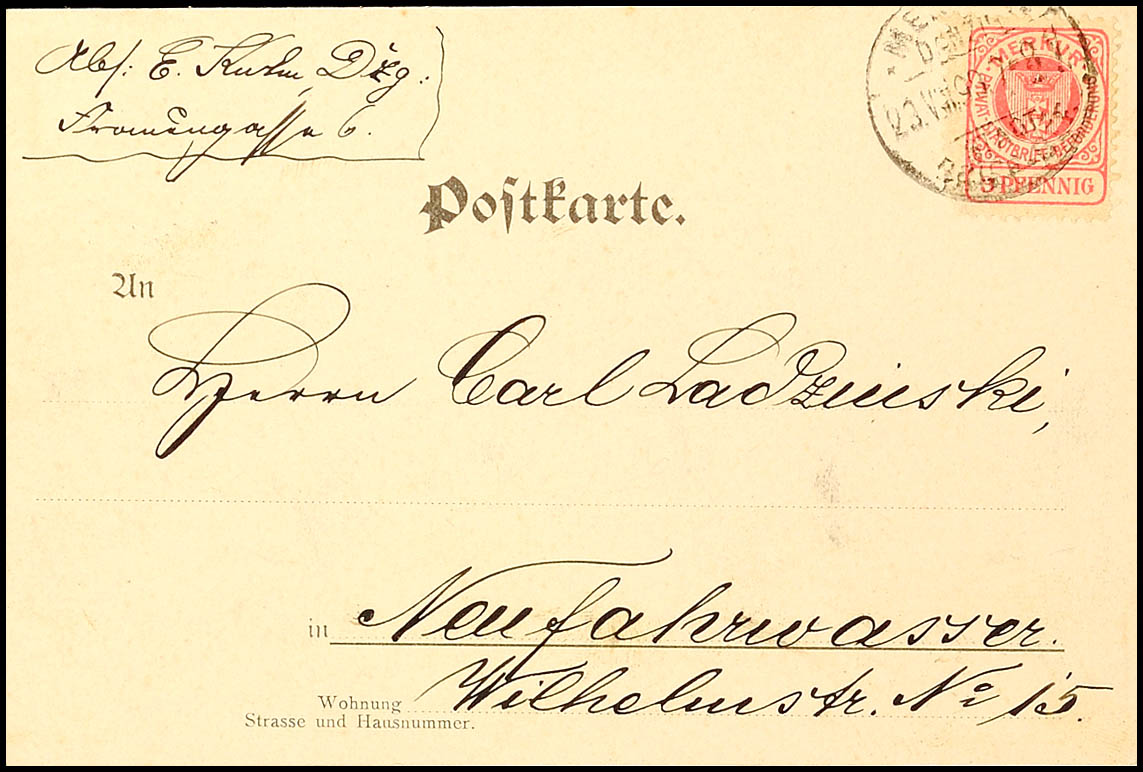 Abs: E. Kuhn, Dzg:
Frauengasse 6.
MERKUR
PRIVAT-STADTBRIEF-BEFÖRDERUNG
5 PFENNIG
23.VII.99
Postkarte.
An
Herrn Carl Ladzinski,
in Neufahrwasser.
Wohnung Wilhelmstr. No 15.
Strasse und Hausnummer.